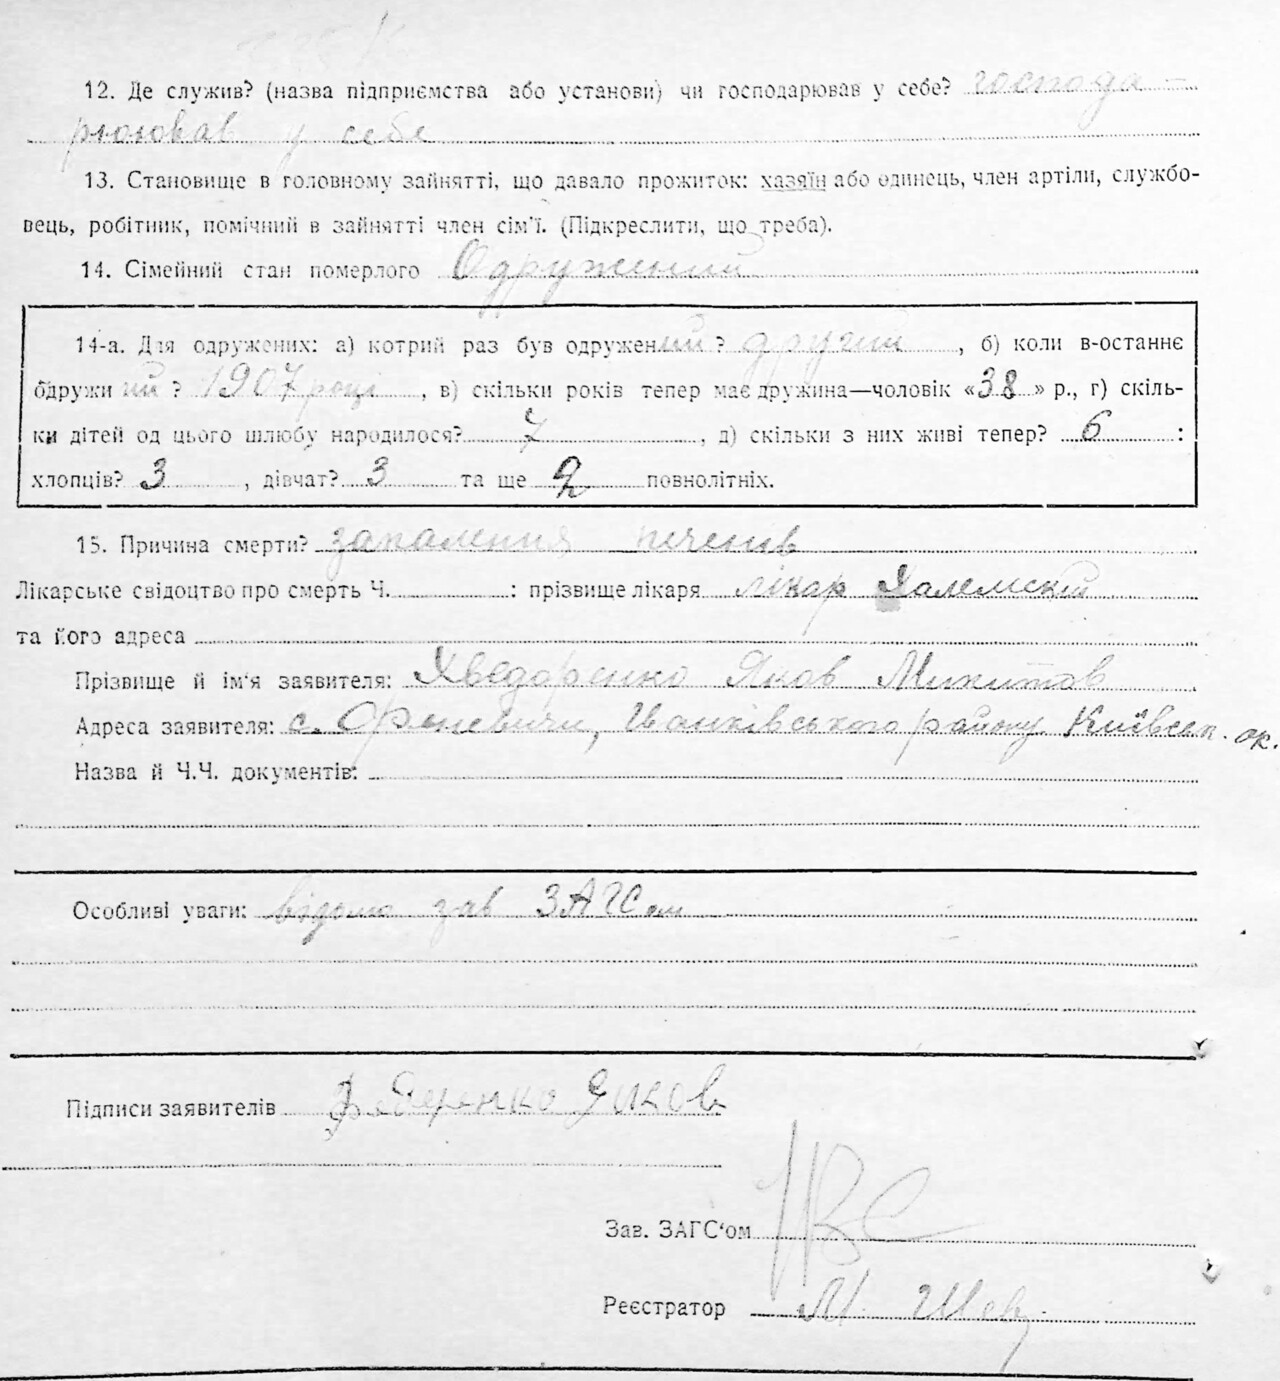 12. Де служив? (назва підприємства або установи) чи господарював у себе? господа-
рював у себе
13. Становище в головному зайнятті, що давало прожиток: хазяїн або одинець, член артіли, службо-
вець, робітник, помічний в зайнятті член сім'ї. (Підкреслити, що треба).
14. Сімейний стан померлого Одружений
14-а. Для одружених: а) котрий раз був одружений? другий, б) коли в-останнє
одружи ий? 1907 році, в) скільки років тепер має дружина—чоловік «38» р., г) скіль-
ки дітей од цього шлюбу народилося? 7, д) скільки з них живі тепер? 6 :
хлопців? 3, дівчат? 3 та ще 2 повнолітніх.
15. Причина смерти? запалення печенів
Лікарське свідоцтво про смерть Ч. : прізвище лікаря лікар Халемский
та його адреса
Прізвище й ім'я заявителя: Хведоренко Яков Микитов
Адреса заявителя: с. Ораневичи, Іванківського району Київськ. ок.
Назва й Ч.Ч. документів:
Особливі уваги: відомо зав ЗАГСом
Підписи заявителів Федеренко Яков
Зав. ЗАГС'ом
Реєстратор М. Шев